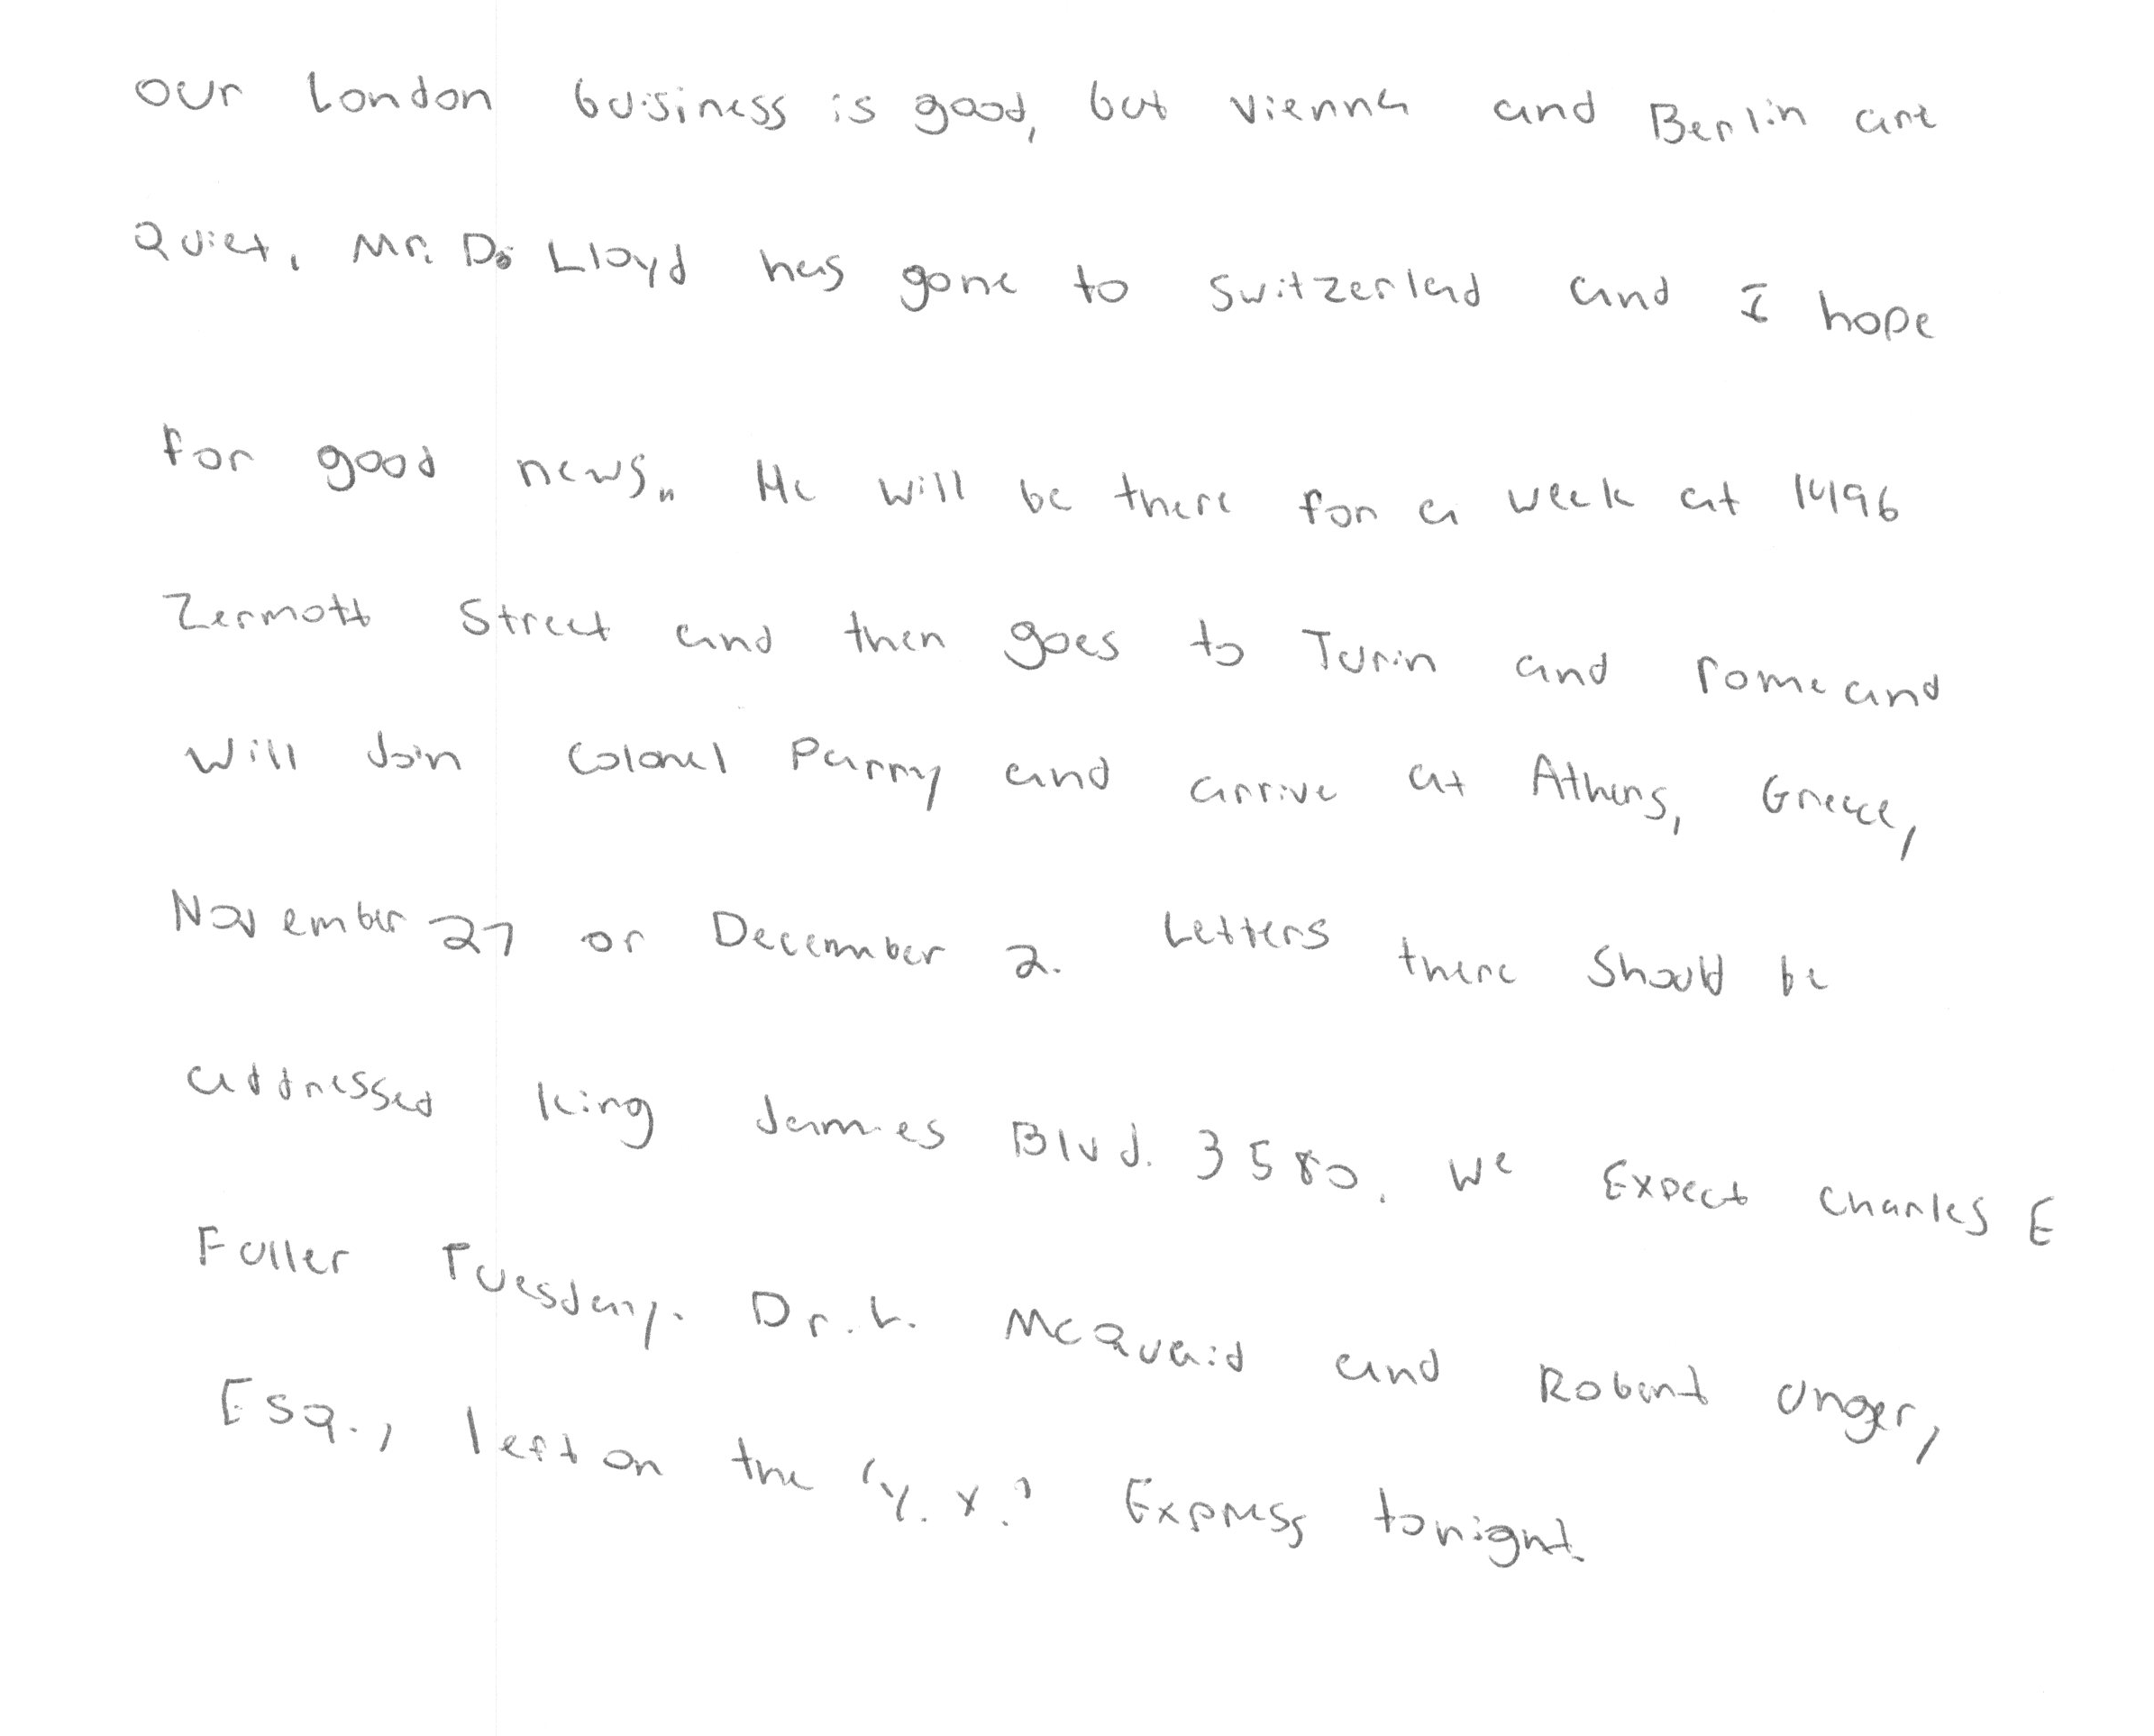 our London business is good, but vienna and Berlin are
Quiet. Mr. D. Lloyd has gone to switzerlad and I hope
for good news. He will be there for a week at 1496
Zermott Street and then goes to Turin and rome and
will Join Colonel Parry and arrive at Athens, Greece,
November 27 or December 2. Letters there Should be
addressed King James Blvd. 3580. We Expect Charles E
Fuller Tuesday. Dr. L. McQuaid and Robert Unger,
Esq., left on the "Y. X." Express tonight.